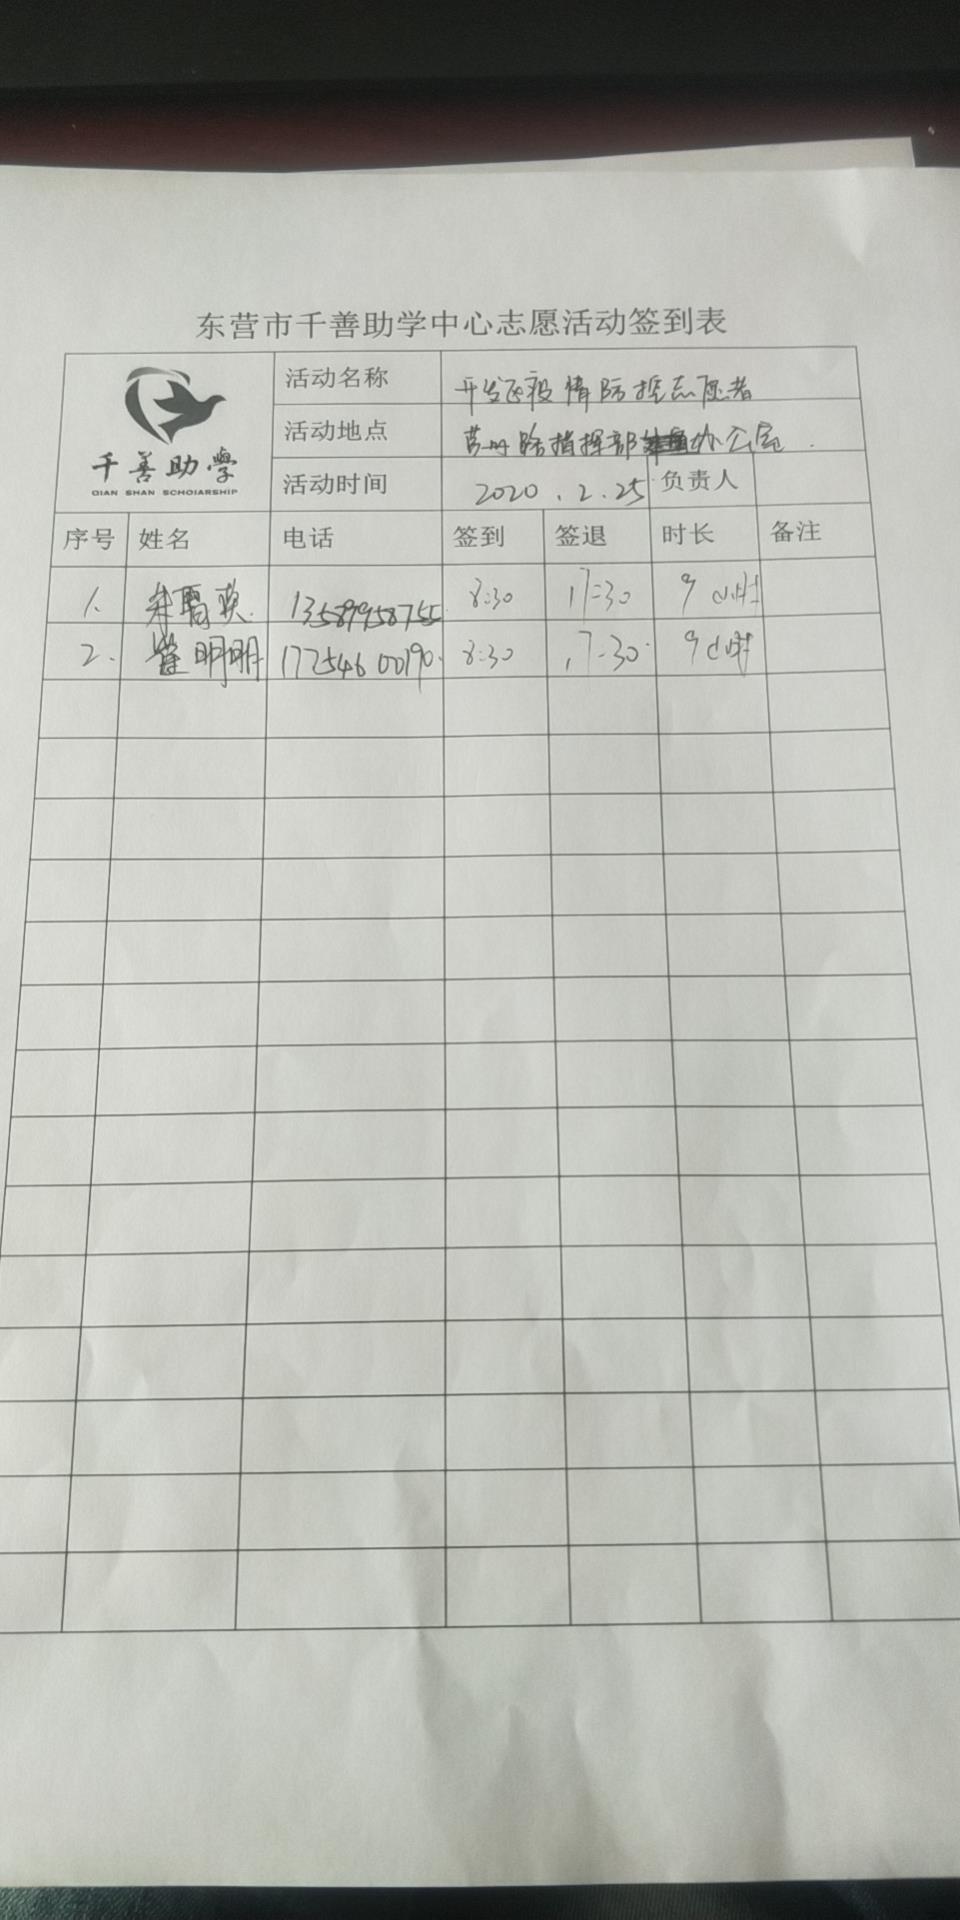 东营市千善助学中心志愿活动签到表
千善助學
QIAN SHAN SCHOIARSHIP
活动名称 开发区疫情防控志愿者
活动地点 指挥部 办公室.
活动时间 2020.2.25 负责人
序号 姓名 电话 签到 签退 时长 备注
1. 13589958755 8:30 17:30 9小时
2. 明明 17254600190. 8:30 17:30 9小时